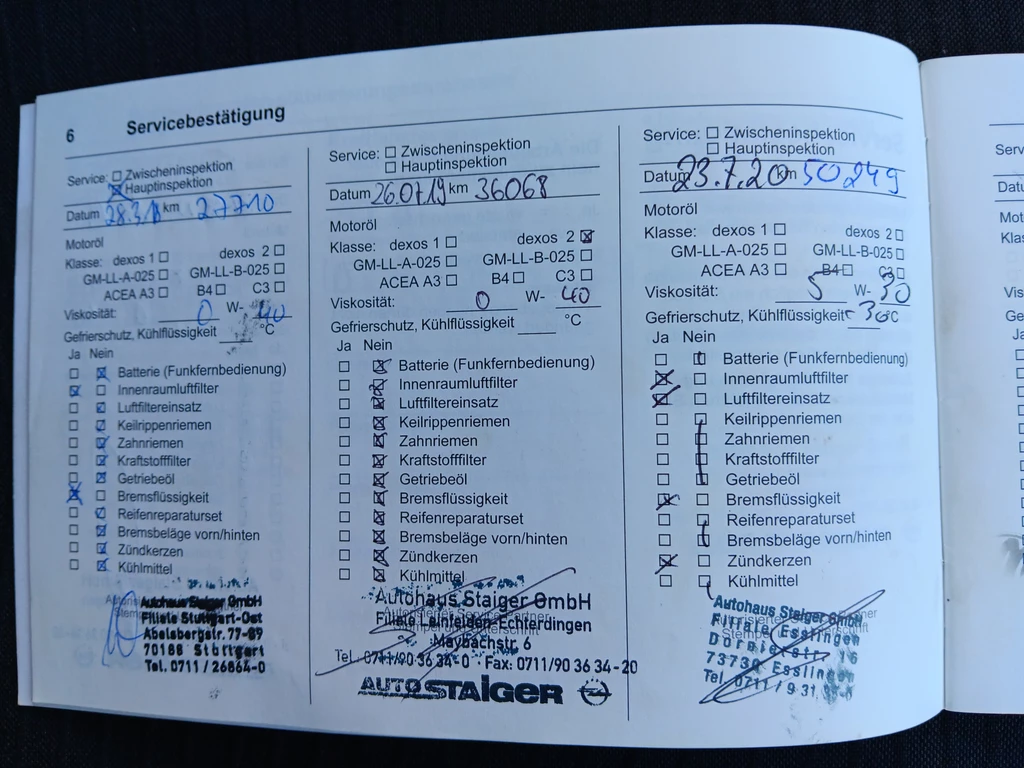 6 Servicebestätigung
Service: ☐ Zwischeninspektion
☒ Hauptinspektion
Datum 28.3.18 km 27710
Motoröl
Klasse: dexos 1 ☐ dexos 2 ☐
GM-LL-A-025 ☐ GM-LL-B-025 ☐
ACEA A3 ☐ B4 ☐ C3 ☐
Viskosität: 0 W- 40
Gefrierschutz, Kühlflüssigkeit °C
Ja Nein
☐ ☒ Batterie (Funkfernbedienung)
☒ ☐ Innenraumluftfilter
☐ ☒ Luftfiltereinsatz
☐ ☒ Keilrippenriemen
☐ ☒ Zahnriemen
☐ ☒ Kraftstofffilter
☐ ☒ Getriebeöl
☒ ☐ Bremsflüssigkeit
☐ ☒ Reifenreparaturset
☐ ☒ Bremsbeläge vorn/hinten
☐ ☒ Zündkerzen
☐ ☒ Kühlmittel
Autohaus Staiger GmbH
Filiale Stuttgart-Ost
Abelsbergstr. 77-89
70188 Stuttgart
Tel. 0711 / 26864-0
Service: ☐ Zwischeninspektion
☐ Hauptinspektion
Datum 26.07.19 km 36068
Motoröl
Klasse: dexos 1 ☐ dexos 2 ☒
GM-LL-A-025 ☐ GM-LL-B-025 ☐
ACEA A3 ☐ B4 ☐ C3 ☐
Viskosität: 0 W- 40
Gefrierschutz, Kühlflüssigkeit °C
Ja Nein
☐ ☒ Batterie (Funkfernbedienung)
☐ ☒ Innenraumluftfilter
☐ ☒ Luftfiltereinsatz
☐ ☒ Keilrippenriemen
☐ ☒ Zahnriemen
☐ ☒ Kraftstofffilter
☐ ☒ Getriebeöl
☐ ☒ Bremsflüssigkeit
☐ ☒ Reifenreparaturset
☐ ☒ Bremsbeläge vorn/hinten
☐ ☒ Zündkerzen
☐ ☒ Kühlmittel
Autohaus Staiger GmbH
Filiale Leinfelden-Echterdingen
Maybachstr. 6
Tel. 0711/90 36 34-0 Fax: 0711/90 36 34-20
AUTO STAIGER
Service: ☐ Zwischeninspektion
☐ Hauptinspektion
Datum 23.7.20 km 50249
Motoröl
Klasse: dexos 1 ☐ dexos 2 ☐
GM-LL-A-025 ☐ GM-LL-B-025 ☐
ACEA A3 ☐ B4 ☐ C3 ☐
Viskosität: 5 W- 30
Gefrierschutz, Kühlflüssigkeit -30 °C
Ja Nein
☐ ☒ Batterie (Funkfernbedienung)
☒ ☐ Innenraumluftfilter
☒ ☐ Luftfiltereinsatz
☐ ☒ Keilrippenriemen
☐ ☒ Zahnriemen
☐ ☒ Kraftstofffilter
☐ ☒ Getriebeöl
☒ ☐ Bremsflüssigkeit
☐ ☐ Reifenreparaturset
☐ ☒ Bremsbeläge vorn/hinten
☒ ☐ Zündkerzen
☐ ☒ Kühlmittel
Autohaus Staiger GmbH
Filiale Esslingen
73730 Esslingen
Tel. 0711 / 9 31